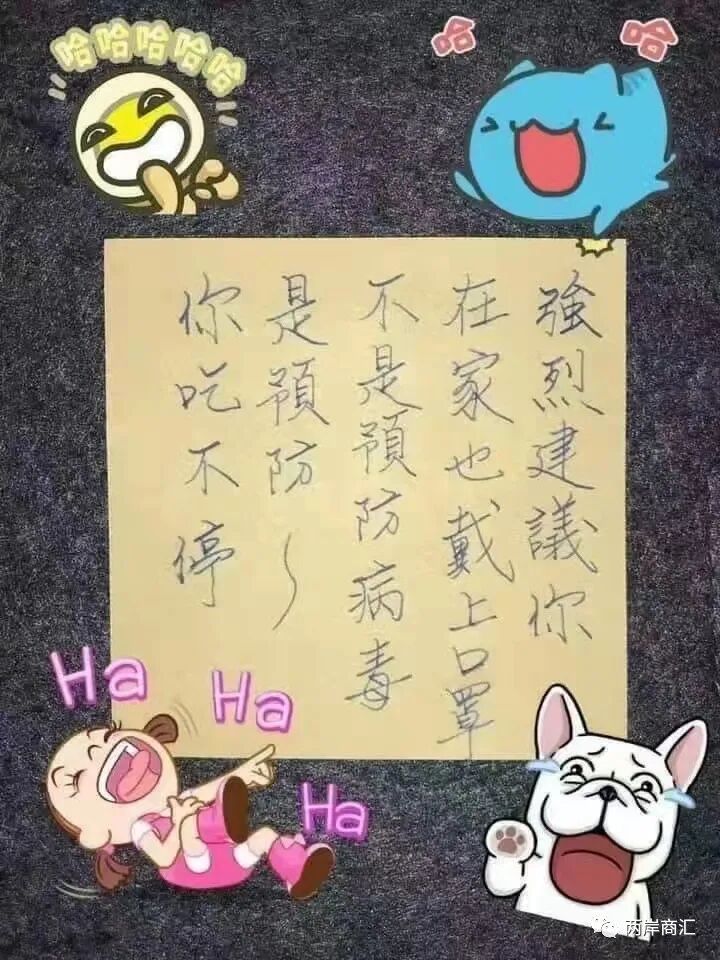 哈哈哈哈哈
哈
哈
強烈建議你
在家也戴上口罩
不是預防病毒
是預防～
你吃不停
Ha
Ha
Ha
两岸商汇